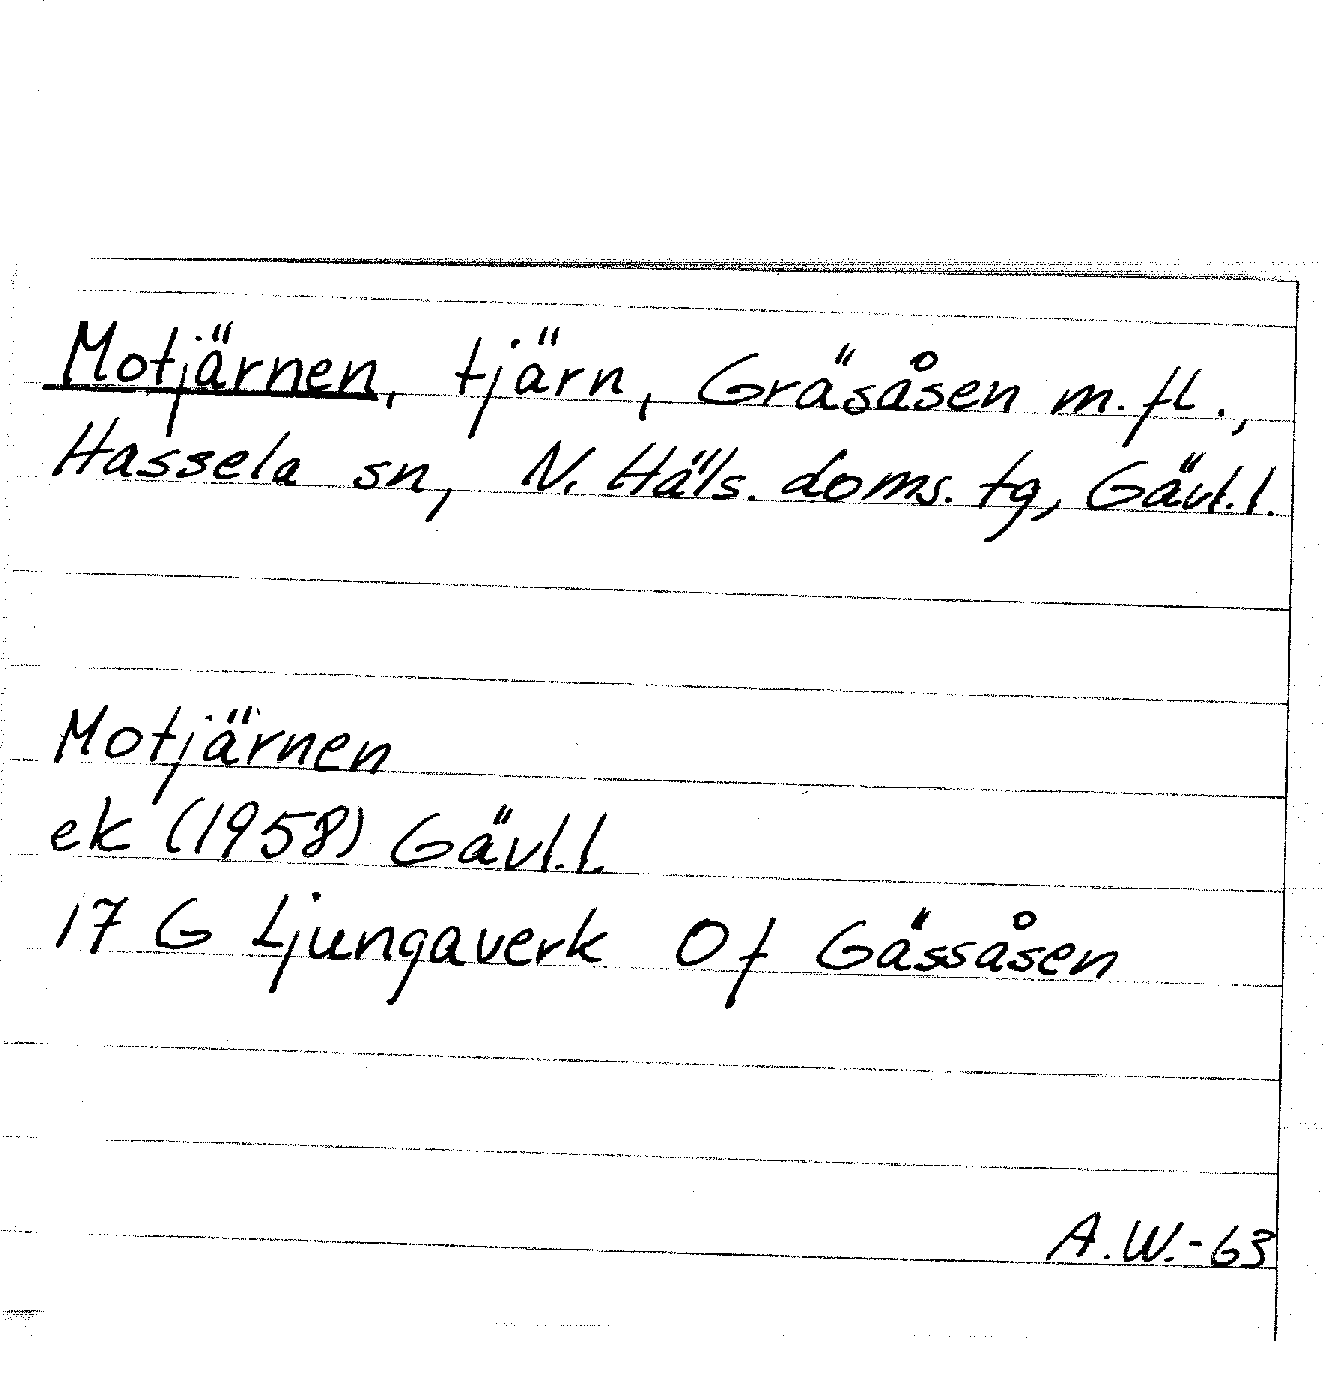 Motjärnen, tjärn, Gräsåsen m.fl.,
Hassela sn, N. Häls. doms. tg, Gävl.l.
Motjärnen
ek (1958) Gävl.l.
17 G Ljungaverk 0 f Gässåsen
A.W.-63